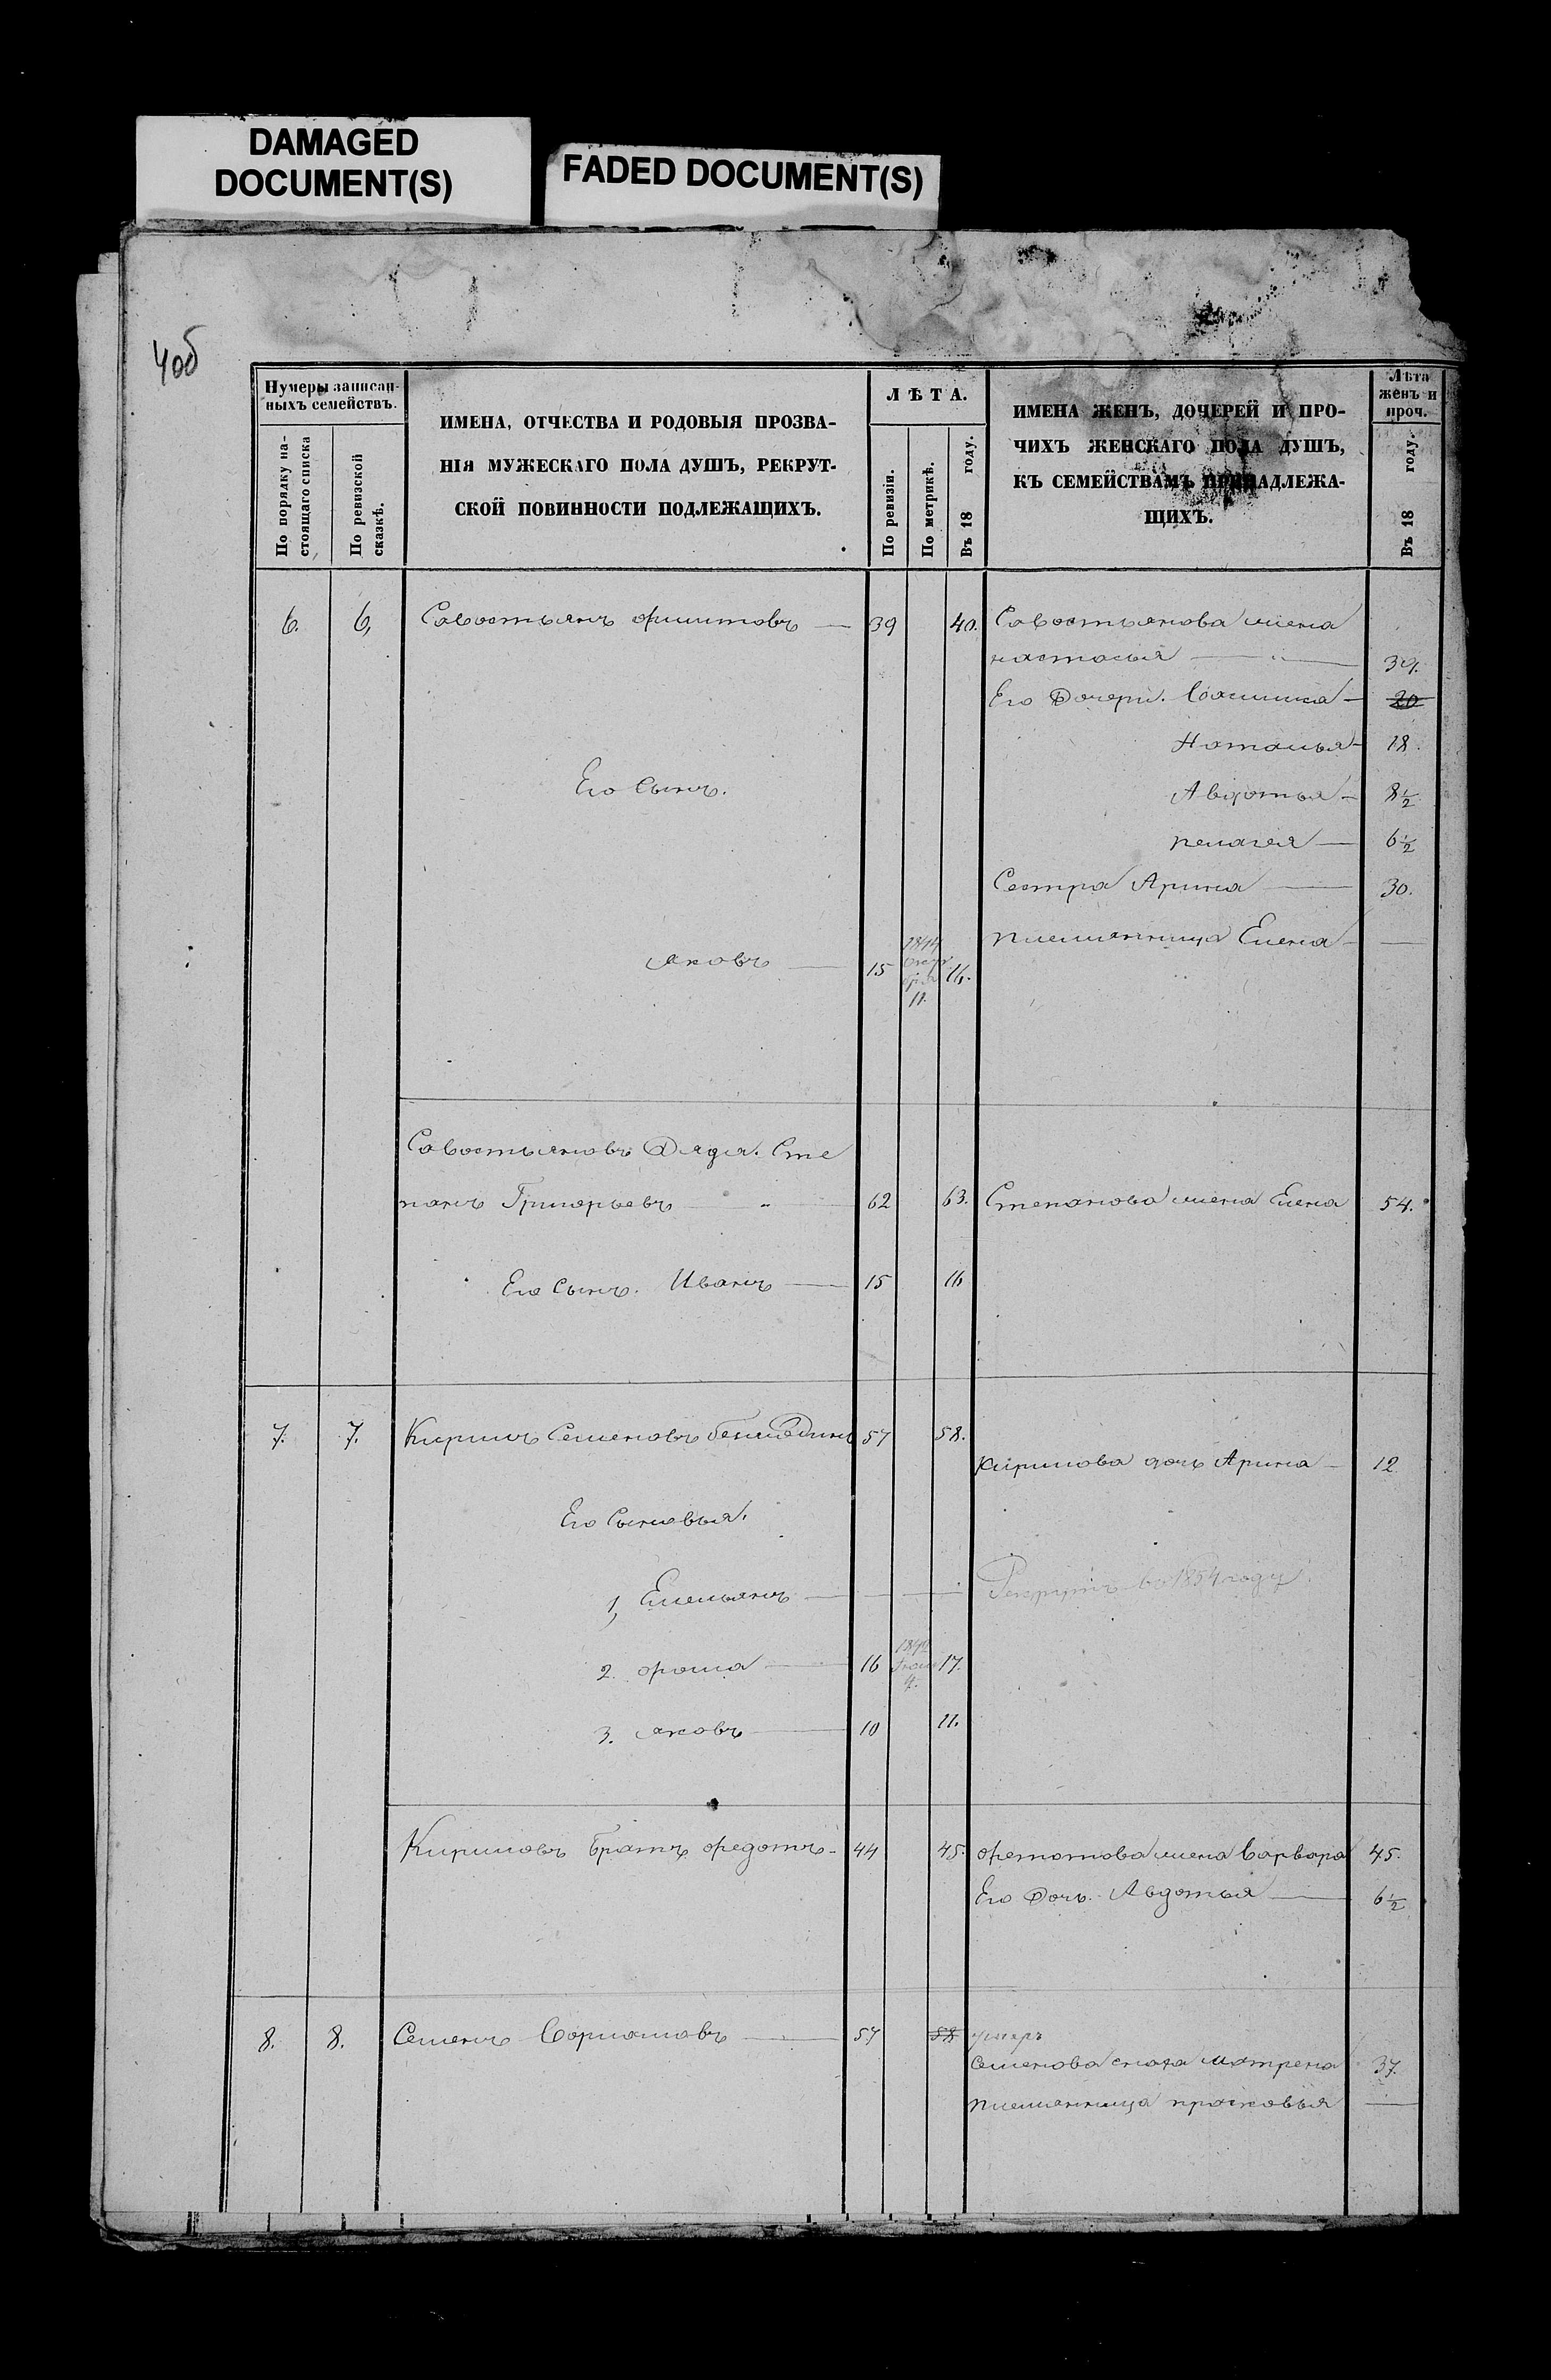 DAMAGED
DOCUMENT(S)
FADED DOCUMENT(S)
40б
Нумеры записан-
ныхъ семействъ.
По порядку на-
стоящаго списка
По ревизской
сказкѣ.
ИМЕНА, ОТЧЕСТВА И РОДОВЫЯ ПРОЗВА-
НІЯ МУЖЕСКАГО ПОЛА ДУШЪ, РЕКРУТ-
СКОЙ ПОВИННОСТИ ПОДЛЕЖАЩИХЪ.
ЛѢТА.
По ревизіи.
По метрикѣ.
Въ 18 году.
ИМЕНА ЖЕНЪ, ДОЧЕРЕЙ И ПРО-
ЧИХЪ ЖЕНСКАГО ПОЛА ДУШЪ,
КЪ СЕМЕЙСТВАМЪ ПРИНАДЛЕЖА-
ЩИХЪ.
Лѣта
женъ и
проч.
Въ 18 году.
6. 6, Савостьянъ филитовъ 39 40. Савостьянова жена
настасья 39.
Его Дочери. 20
Наталья 18.
Его Сынъ. Авдотья 8 1/2
пелагея 6 1/2
Сестра Арина 30.
племянница Елена
яковъ 15 16.
11.
Савостьяновъ Дядя. Сте
панъ Григорьевъ 62 63. Степанова жена Елена 54.
Его Сынъ. Иванъ 15 16
7. 7. Кирилъ Семеновъ 57 58.
Кирилова дочь Арина 12
Его Сыновья.
1, Емельянъ Рекрутъ во 1854 году
2. фома 16 17.
3. яковъ 10 11.
Кириловъ братъ федотъ 44 45. жена Варвара 45.
Его Дочь. Авдотья 6 1/2
8. 8. Семенъ 57 58 умеръ
Семенова сноха Матрена 37.
племянница прасковья